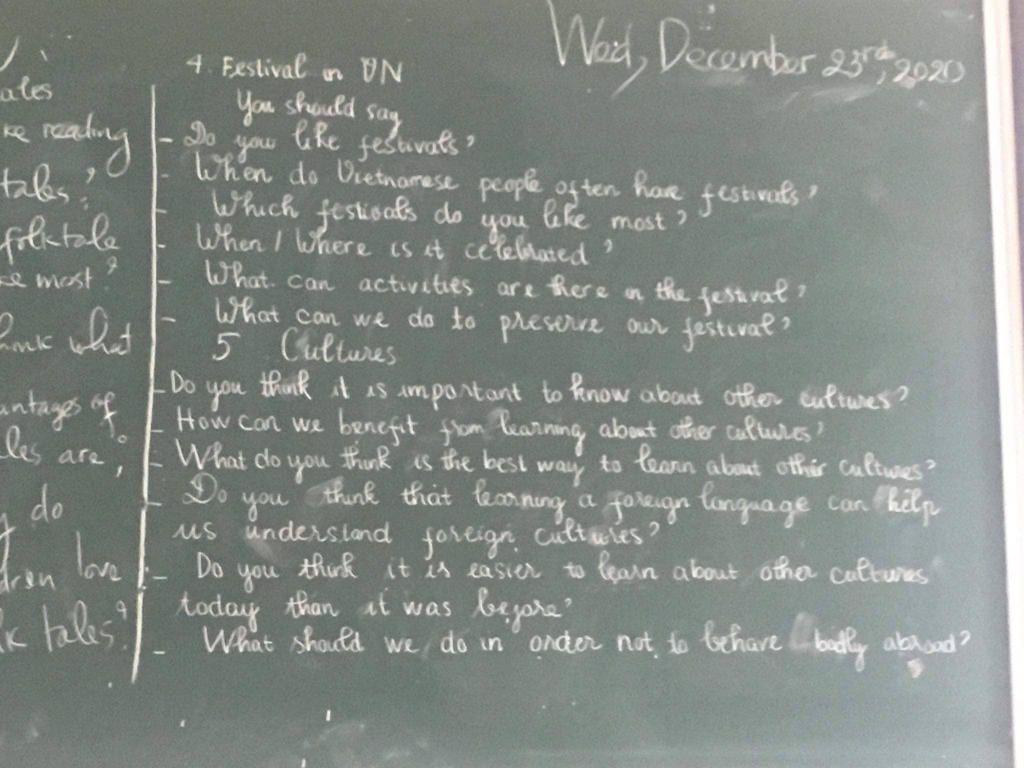 Wed, December 23rd, 2020
ales
ke reading
tales?
folktale
ke most?
think what
antages of
les are,
do
dren love
k tales?
4. Festival in VN
You should say
- Do you like festivals?
- When do Vietnamese people often have festivals?
- Which festivals do you like most?
- When / Where is it celebrated?
- What can activities are there in the festival?
- What can we do to preserve our festival?
5 Cultures
- Do you think it is important to know about other cultures?
- How can we benefit from learning about other cultures?
- What do you think is the best way to learn about other cultures?
- Do you think that learning a foreign language can help
us understand foreign cultures?
- Do you think it is easier to learn about other cultures
today than it was before?
- What should we do in order not to behave badly abroad?